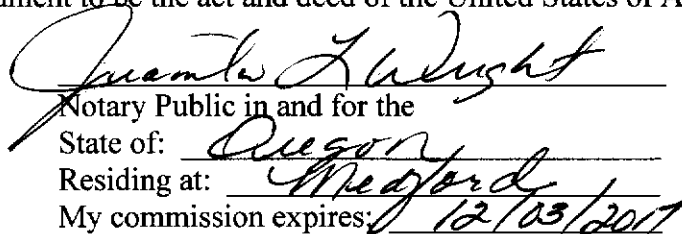 ment to be the act and deed of the United States of A
Juanita L Wright
Notary Public in and for the
State of: Oregon
Residing at: Medford
My commission expires: 12/03/2017